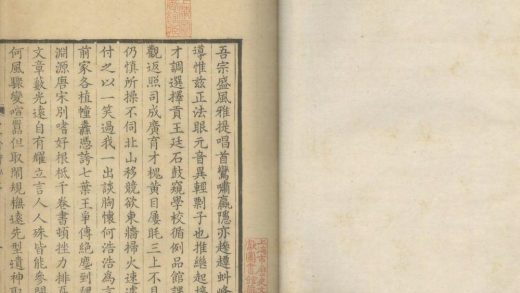 吾宗盛風雅提唱首鸞嘯嬴隱亦趦趄蚪峰
導惟茲正法眼元音異輕剽子也推繼起
才調選擇貢王廷石鼓窺學校循例品館課
觀返照司成廣育才槐黃目屢眊三上不見
仍慎所操不伺北山移競欲東牆掃火速
付之以一笑過我一出談胸懷何浩浩為言
前家各植幢纛憑誇七葉王爭傳絕塵到
淵源唐宋別嗜好根柢千卷書頓挫力排
文章藪光遠自有耀立言人人殊皆能參
何風驟變喧囂但取閑規橅遠先型遺神